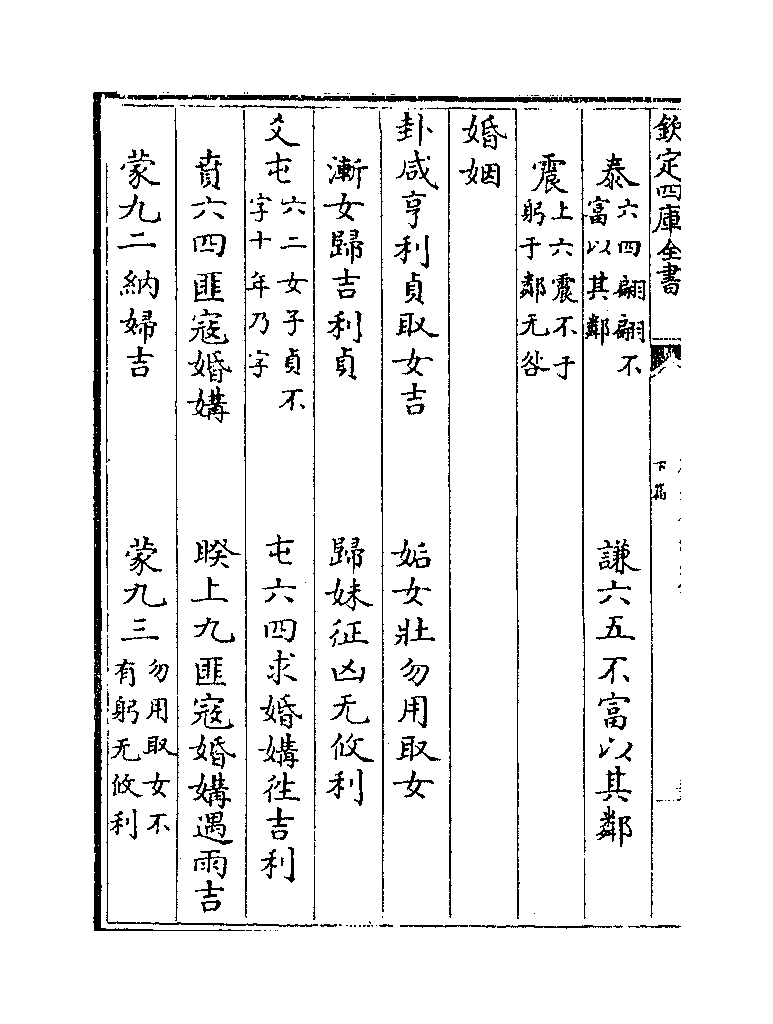 欽定四庫全書
下篇
泰六四翩翩不富以其鄰　謙六五不富以其鄰
震上六震不于躬于鄰无咎
婚姻
卦咸亨利貞取女吉　姤女壯勿用取女
漸女歸吉利貞　歸妹征凶无攸利
爻屯六二女子貞不字十年乃字　屯六四求婚媾徃吉利
賁六四匪寇婚媾　睽上九匪寇婚媾遇雨吉
蒙九二納婦吉　蒙九三勿用取女不有躬无攸利